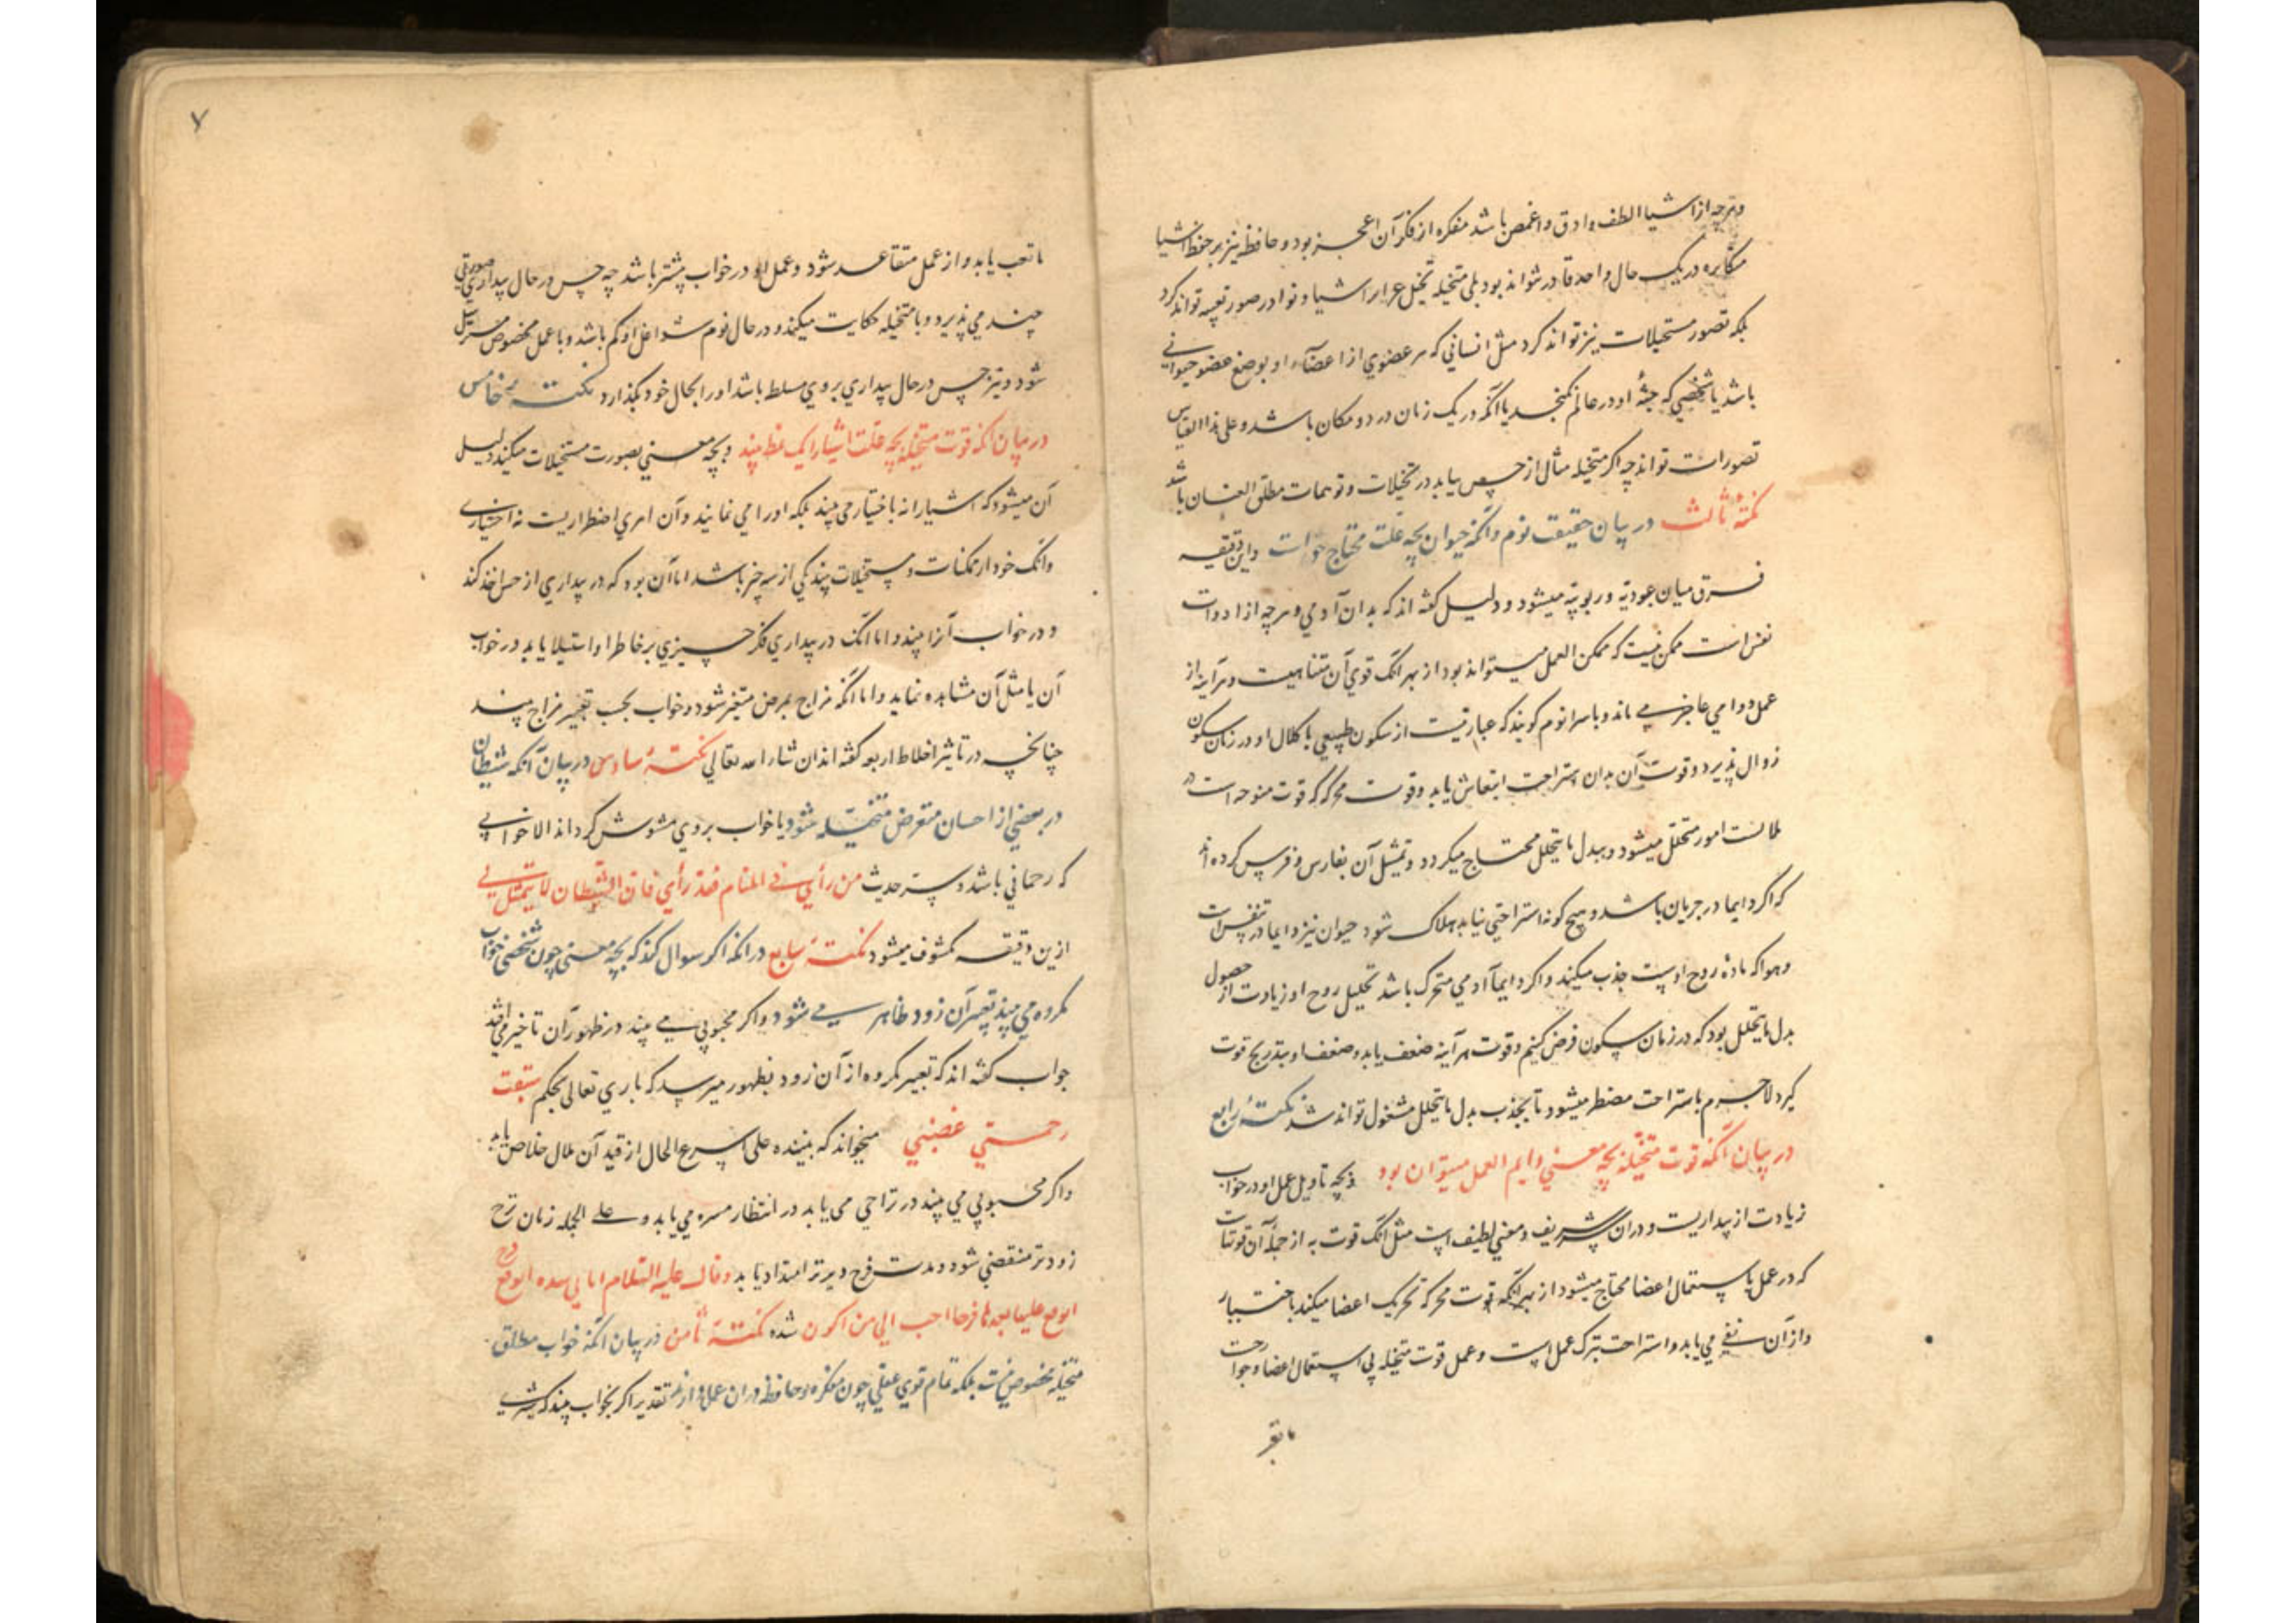 وهرچه از اشیا الطف و ادق و اغمض باشد مفکره از فکر آن اعجز بود و حافظه نیز بر حفظ اشیا
متکاثره در یک حال واحد قادر نتواند بود بلی متخیله تخیل اشیا و نوادر صور تواند کرد
بلکه تصور مستحیلات نیز تواند کرد مثل انسانی که هر عضوی از اعضاء او بوضع عضو حیوانی
باشد یا شخصی که جثهٔ او در عالم نکنجد یا آنکه در یک زمان در دو مکان باشد و علی هذا القیاس
تصورات تواند چه اکر متخیله مثال از حس بیابد در تخیلات و توهمات مطلق العنان باشد
نکتهٔ ثالث در بیان حقیقت نوم و آنکه حیوان بچه علت محتاج خواب است و این دقیقه
فرق میان عبودیة و ربوبیة میشود و دلیل کفته اند که بدان آدمی و هرچه از ادوات
نفس است ممکن نیست که ممکن العمل میتواند بود از بهر آنک قوی آن متناهیست و هرآینه از
عمل دوامی عاجز می ماند و باسرا نوم کویند که عبارتیست از سکون طبیعی با کلال او در زمان سکون
زوال پذیرد و قوت آن بدان استراحت انتعاش یابد و قوت محرکه که قوت است در
ملابست امور متحلل میشود و ببدل ما یتحلل محتاج میکردد و تمثیل آن بفارس و فرس کرده اند
که اکر دایما در جریان باشد و هیچ کونه استراحتی نیابد هلاک شود حیوان نیز دایما در تنفس است
و هوا که مادهٔ روح اوست جذب میکند و اکر دایماً آدمی متحرک باشد تحلیل روح او زیادت از حصول
بدل ما یتحلل بود که در زمان سکون فرض کنیم و قوت هرآینه ضعف یابد و ضعف او بتدریج قوت
کیرد لاجرم باستراحت مضطر میشود تا بجذب بدل ما یتحلل مشغول تواند شد نکتهٔ رابع
در بیان آنکه قوت متخیله بچه معنی دایم العمل میتوان بود و بچه تاویل عمل او در خواب
زیادت از بیداریست و در آن شریف و معنی لطیف است مثل آنک قوت نه از جمله آن قوتهاست
که در عمل باستعمال اعضا محتاج میشود از بهر آنکه قوت محرکه تحریک اعضا میکند باختیار
و از آن می یابد و استراحت بترک عمل است و عمل قوت متخیله بی استعمال اعضا و جوارحست
ما تعب یابد و از عمل متقاعد شود و عمل او در خواب بیشتر باشد چه حس در حال بیداری صورتی
چند می پذیرد و با متخیله حکایت میکند و در حال نوم شواغل او کم باشد و با عمل مخصوص
شود و نیز حس در حال بیداری بر وی مسلط باشد او را بحال خود بکذارد نکتهٔ خامس
در بیان آنکه قوت متخیله بچه علت اشیا را یک بیند و بچه معنی بصورت مستحیلات میکند دلیل
آن میشود که اشیا را نه باختیار می بیند بلکه او را می نمایند و آن امری اضطراریست نه اختیاری
و آنک خود از ممکنات و مستحیلات بیند یکی از سه چیز باشد اما آن بود که در بیداری از حس اخذ کند
و در خواب آنرا بیند و اما آنک در بیداری فکر چیزی بر خاطر او استیلا یابد در خواب
آن یا مثل آن مشاهده نماید و اما آنکه مزاج بمرض متغیر شود و خواب بحسب تغییر مزاج بیند
چنانچه در تاثیر اخلاط اربعه کفته اند ان شاء الله تعالی نکتهٔ سادس در بیان آنکه شیطان
در بعضی از احسان متعرض متخیله شود یا خواب بر وی مشوش کرداند الا خوابی
که رحمانی باشد و سر حدیث من رأی فی المنام فقد رأی فان الشیطان لا یتمثل بی
ازین دقیقه مکشوف میشود نکتهٔ سابع در آنکه اکر سوال کنند که بچه معنی چون شخصی خواب
مکروه می بیند تعبیر آن زود ظاهر می شود و اکر محبوبی می بیند در ظهور آن تاخیر می افتد
جواب کفته اند که تعبیر مکروه از آن زود بظهور میرسد که باری تعالی بحکم سبقت
رحمتی غضبی میخواند که بیننده علی اسرع الحال از قید آن ملال خلاص یابد
و اکر محبوبی می بیند در تراخی می یابد در انتظار مسره می یابد و علی الجمله زمان ترح
زودتر منقضی شود و مدت فرح دیرتر امتداد یابد و قال علیه السلام
علیها بعدها فرحا احب الی من اکون شده نکتهٔ ثامن در بیان آنکه خواب مطلق
متخیله مخصوص نیست بلکه تمام قوی عقلی چون مفکره و حافظه در آن عمل دارند تقدیر اکر بخواب بیند که شیری